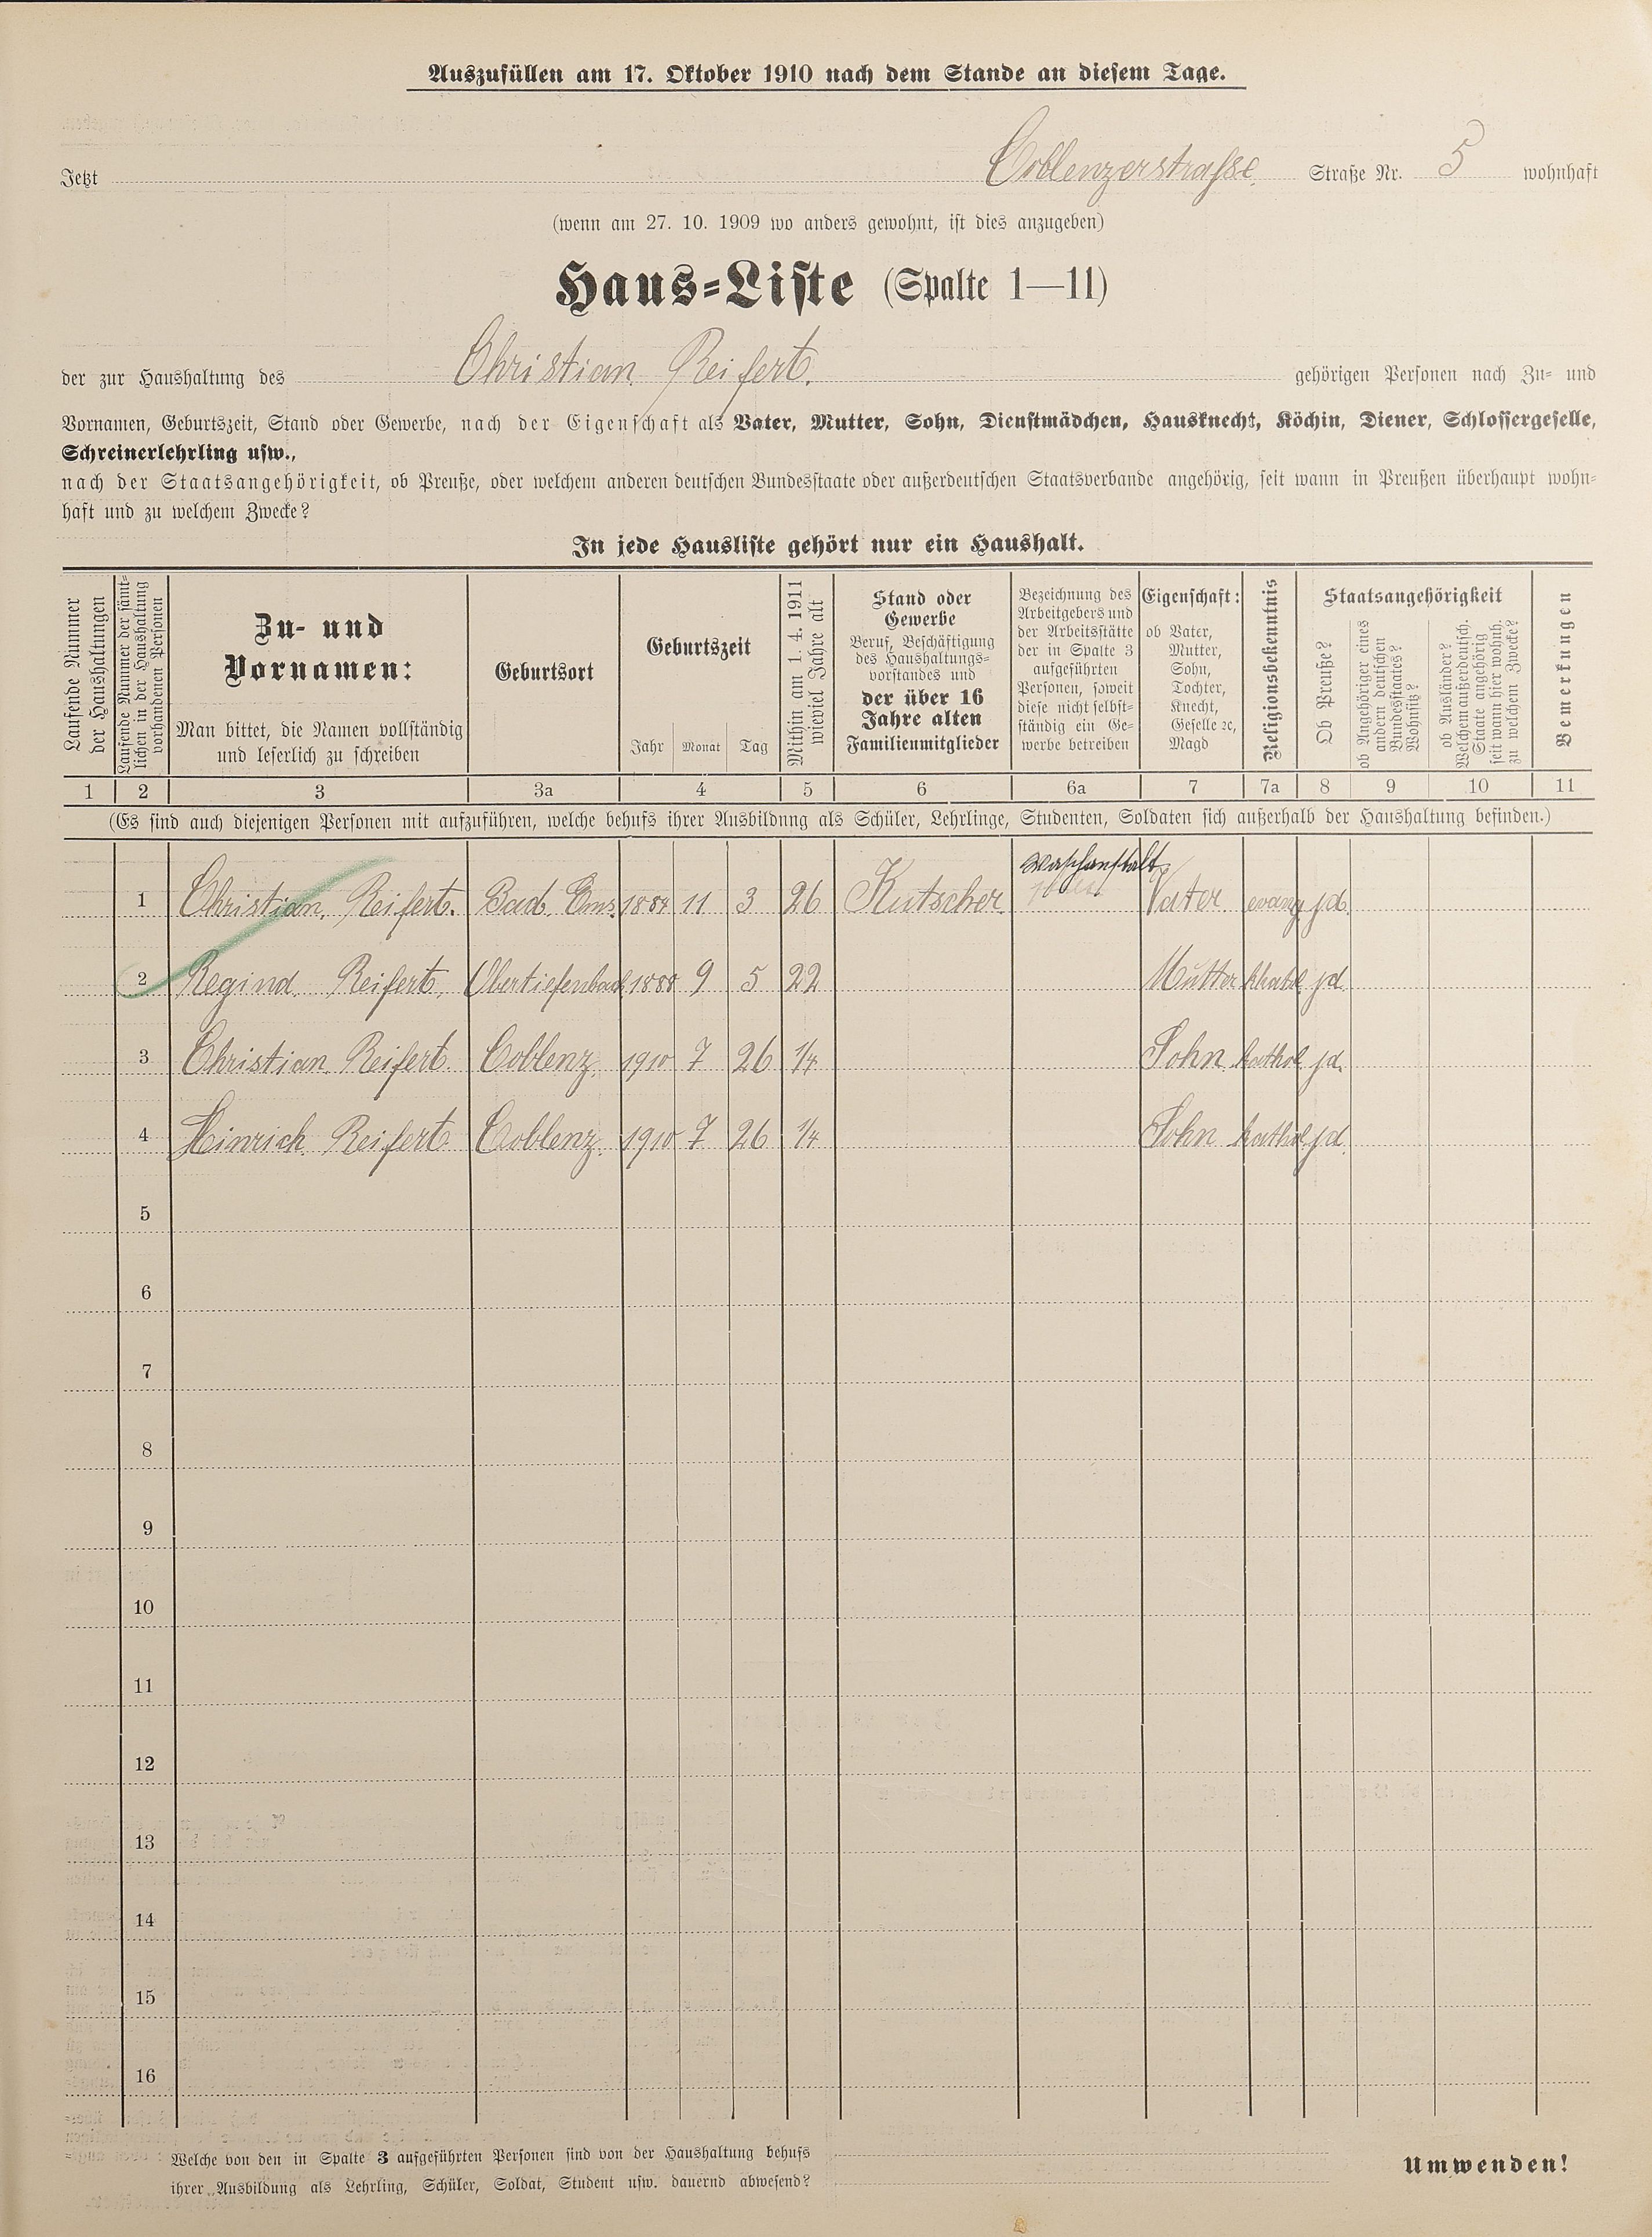 Auszufüllen am 17. Oktober 1910 nach dem Stande an diesem Tage.
Jetzt Coblenzerstraße Straße Nr. 5 wohnhaft
(wenn am 27. 10. 1909 wo anders gewohnt, ist dies anzugeben)
Haus-Liste (Spalte 1—11)
der zur Haushaltung des Christian Reifert. gehörigen Personen nach Zu- und
Vornamen, Geburtszeit, Stand oder Gewerbe, nach der Eigenschaft als Vater, Mutter, Sohn, Dienstmädchen, Hausknecht, Köchin, Diener, Schlossergeselle,
Schreinerlehrling usw.,
nach der Staatsangehörigkeit, ob Preuße, oder welchem anderen deutschen Bundesstaate oder außerdeutschen Staatsverbande angehörig, seit wann in Preußen überhaupt wohn-
haft und zu welchem Zwecke?
In jede Hausliste gehört nur ein Haushalt.
Laufende Nummer
der Haushaltungen
Laufende Nummer der sämt-
lichen in der Haushaltung
vorhandenen Personen
Zu- und
Vornamen:
Man bittet, die Namen vollständig
und leserlich zu schreiben
Geburtsort
Geburtszeit
Jahr Monat Tag
Mithin am 1. 4. 1911
wieviel Jahre alt
Stand oder
Gewerbe
Beruf, Beschäftigung
des Haushaltungs-
vorstandes und
der über 16
Jahre alten
Familienmitglieder
Bezeichnung des
Arbeitgebers und
der Arbeitsstätte
der in Spalte 3
aufgeführten
Personen, soweit
diese nicht selbst-
ständig ein Ge-
werbe betreiben
Eigenschaft:
ob Vater,
Mutter,
Sohn,
Tochter,
Knecht,
Geselle ꝛc,
Magd
Religionsbekenntnis
Staatsangehörigkeit
Ob Preuße?
ob Angehöriger eines
andern deutschen
Bundesstaates?
Wohnsitz?
ob Ausländer?
Welchem außerdeutsch.
Staate angehörig
seit wann hier wohnh.
zu welchem Zwecke?
Bemerkungen
1 2 3 3a 4 5 6 6a 7 7a 8 9 10 11
(Es sind auch diejenigen Personen mit aufzuführen, welche behufs ihrer Ausbildung als Schüler, Lehrlinge, Studenten, Soldaten sich außerhalb der Haushaltung befinden.)
Waschanstalt
1 Christian Reifert. Bad Ems. 1884 11 3 26 Kutscher. Vater evang jd.
2 Regind. Reifert. Obertiefenbach 1888 9 5 22 Mutter kathol jd.
3 Christian Reifert. Coblenz. 1910 7 26 1/4 Sohn kathol jd.
4 Heinrich Reifert Coblenz. 1910 7 26 1/4 Sohn kathol jd.
5
6
7
8
9
10
11
12
13
14
15
16
Welche von den in Spalte 3 aufgeführten Personen sind von der Haushaltung behufs
ihrer Ausbildung als Lehrling, Schüler, Soldat, Student usw. dauernd abwesend?
Umwenden!